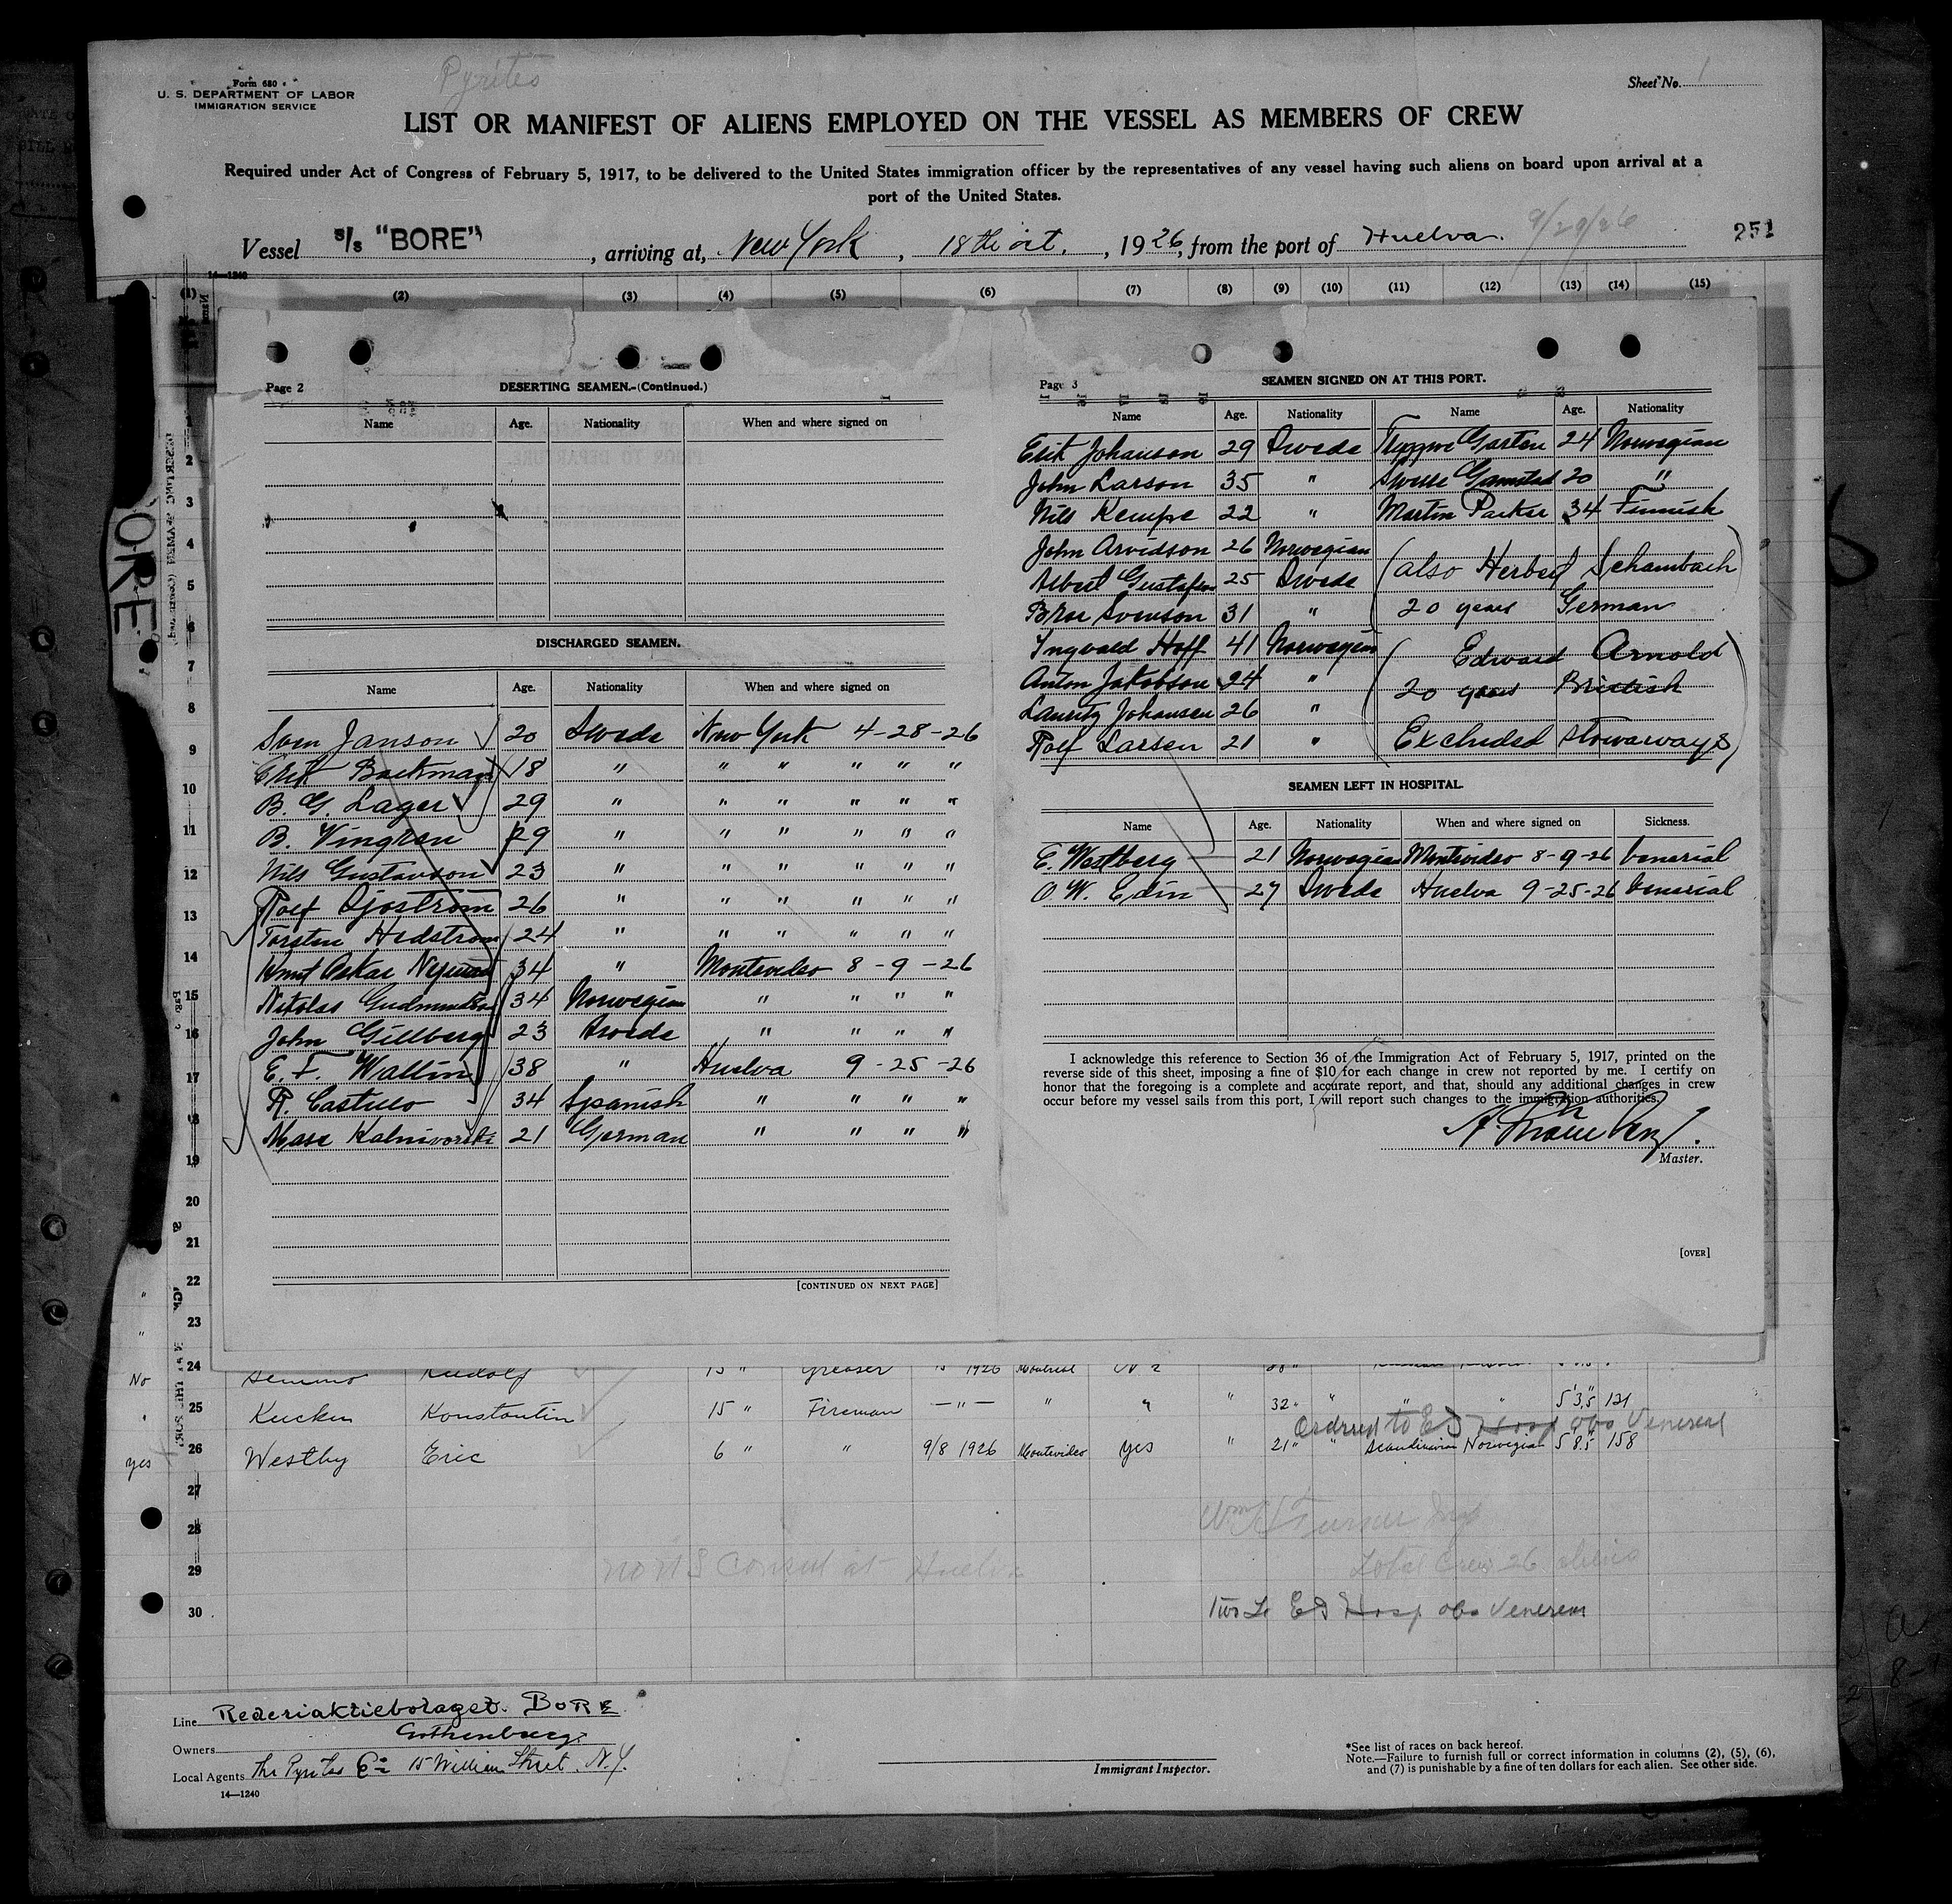 Form 680
U. S. DEPARTMENT OF LABOR
IMMIGRATION SERVICE
Pyrites
Sheet No. 1
LIST OR MANIFEST OF ALIENS EMPLOYED ON THE VESSEL AS MEMBERS OF CREW
Required under Act of Congress of February 5, 1917, to be delivered to the United States immigration officer by the representatives of any vessel having such aliens on board upon arrival at a
port of the United States.
Vessel S/S "BORE", arriving at, New York, 18th oct., 1926, from the port of Huelva. 9/29/26 251
14—1240
(1) (2) (3) (4) (5) (6) (7) (8) (9) (10) (11) (12) (13) (14) (15)
Page 2 DESERTING SEAMEN.-(Continued.)
Name Age. Nationality When and where signed on
DISCHARGED SEAMEN.
Name Age. Nationality When and where signed on
Sven Janson 20 Swede New York 4-28-26
Erik Backman 18 " " " " " "
B. G. Lager 29 " " " " " "
B. Vingren 29 " " " " " "
Nils Gustavson 23 " " " " " "
Rolf Sjostrom 26 " " " " " "
Torsten Hedstrom 24 " " " " " "
Knut Oskar 34 " Montevideo 8-9-26
Nikolas 34 Norwegian " " " "
John Gillberg 23 Swede " " " "
E. F. Wallin 38 " Huelva 9-25-26
R. Castillo 34 Spanish " " " "
21 German " " " "
[CONTINUED ON NEXT PAGE]
Page 3 SEAMEN SIGNED ON AT THIS PORT.
Name Age. Nationality Name Age. Nationality
Erik Johanson 29 Swede Tryggve Garten 24 Norwegian
John Larson 35 " Sverre Gamstad 20 "
Nils Kempe 22 " Martin Parker 34 Finnish
John Arvidson 26 Norwegian
Albert Gustafson 25 Swede (also Herbert Schambach
Bror Svenson 31 " 20 years German
Ingvald Hoff 41 Norwegian (Edward Arnold
Anton Jakobson 24 " 20 years British
Lauritz Johansen 26 "
Rolf Larsen 21 " Excluded Stowaways)
SEAMEN LEFT IN HOSPITAL.
Name Age. Nationality When and where signed on Sickness.
E. Westberg 21 Norwegian Montevideo 8-9-26 Venerial
O. W. Edin 27 Swede Huelva 9-25-26 Venerial
I acknowledge this reference to Section 36 of the Immigration Act of February 5, 1917, printed on the
reverse side of this sheet, imposing a fine of $10 for each change in crew not reported by me. I certify on
honor that the foregoing is a complete and accurate report, and that, should any additional changes in crew
occur before my vessel sails from this port, I will report such changes to the immigration authorities.
Master.
[OVER]
ORE
2
3
4
5
6
7
8
9
10
11
12
13
14
15
16
17
18
19
20
21
22
23
No 24 Rudolf 15 " Greaser 1926 Montreal
25 Kucken Konstantin 15 " Fireman —"— " " " 32" " " " 5'3,5 121
Ordered to EI Hosp obs Venereal
yes 26 Westby Eric 6 " " 9/8 1926 Montevideo yes " 21" " Scandinavian Norwegian 5 8.5" 158
27
28 Wm H Turner Insp
29 no US Consul at Huelva Total Crew 26 aliens
30 Two to EI Hosp obs Venereal
Line Rederiaktiebolaget BORE
Gothenburg.
Owners
Local Agents The Pyrites Co 15 William Street. N.Y.
14—1240
Immigrant Inspector.
*See list of races on back hereof.
Note.—Failure to furnish full or correct information in columns (2), (5), (6),
and (7) is punishable by a fine of ten dollars for each alien. See other side.